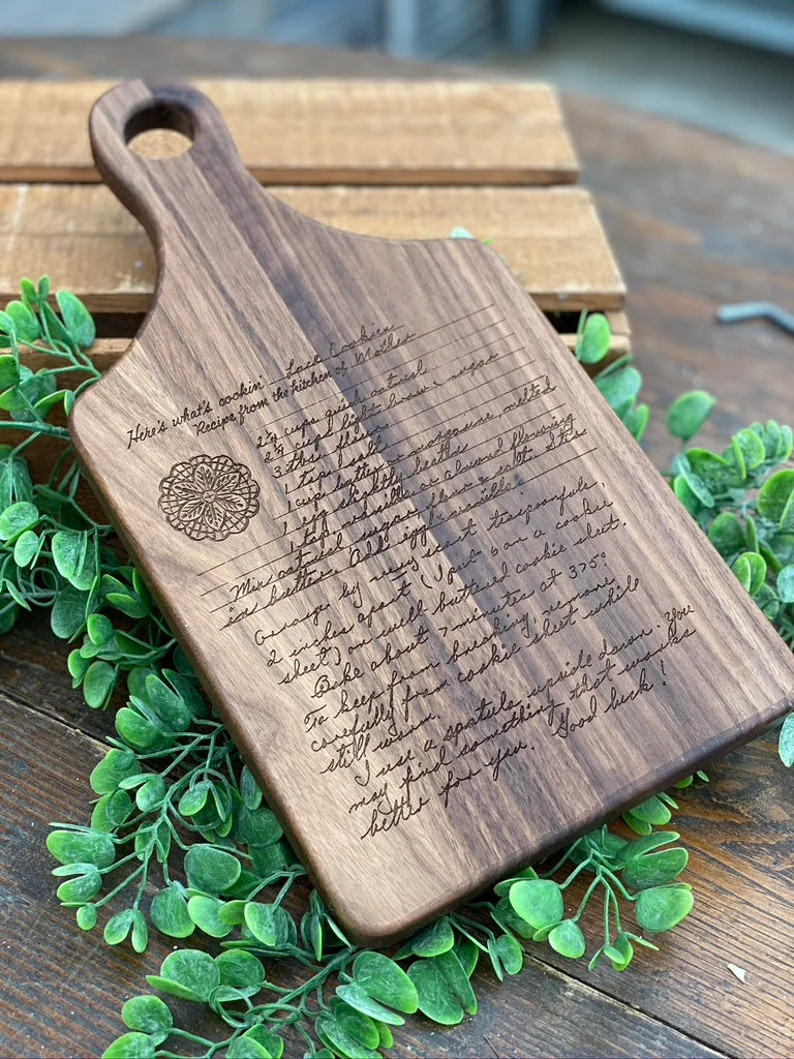 Here's what's cookin' Lace Cookies
Recipe from the kitchen of Mother
2 1/4 cups quick oatmeal
2 1/4 cups light brown sugar
3 tbsp flour
1 tsp salt
1 cup butter or margarine, melted
1 egg slightly beaten
1 tsp vanilla or almond flavoring
Mix oatmeal, sugar, flour & salt. Stir
in butter. Add egg & vanilla.
Arrange by very scant teaspoonfuls,
2 inches apart (I put 6 on a cookie
sheet) on well buttered cookie sheet.
Bake about 7 minutes at 375°.
To keep from breaking, remove
carefully from cookie sheet while
still warm.
I use a spatula upside down. You
may find something that works
better for you. Good luck!